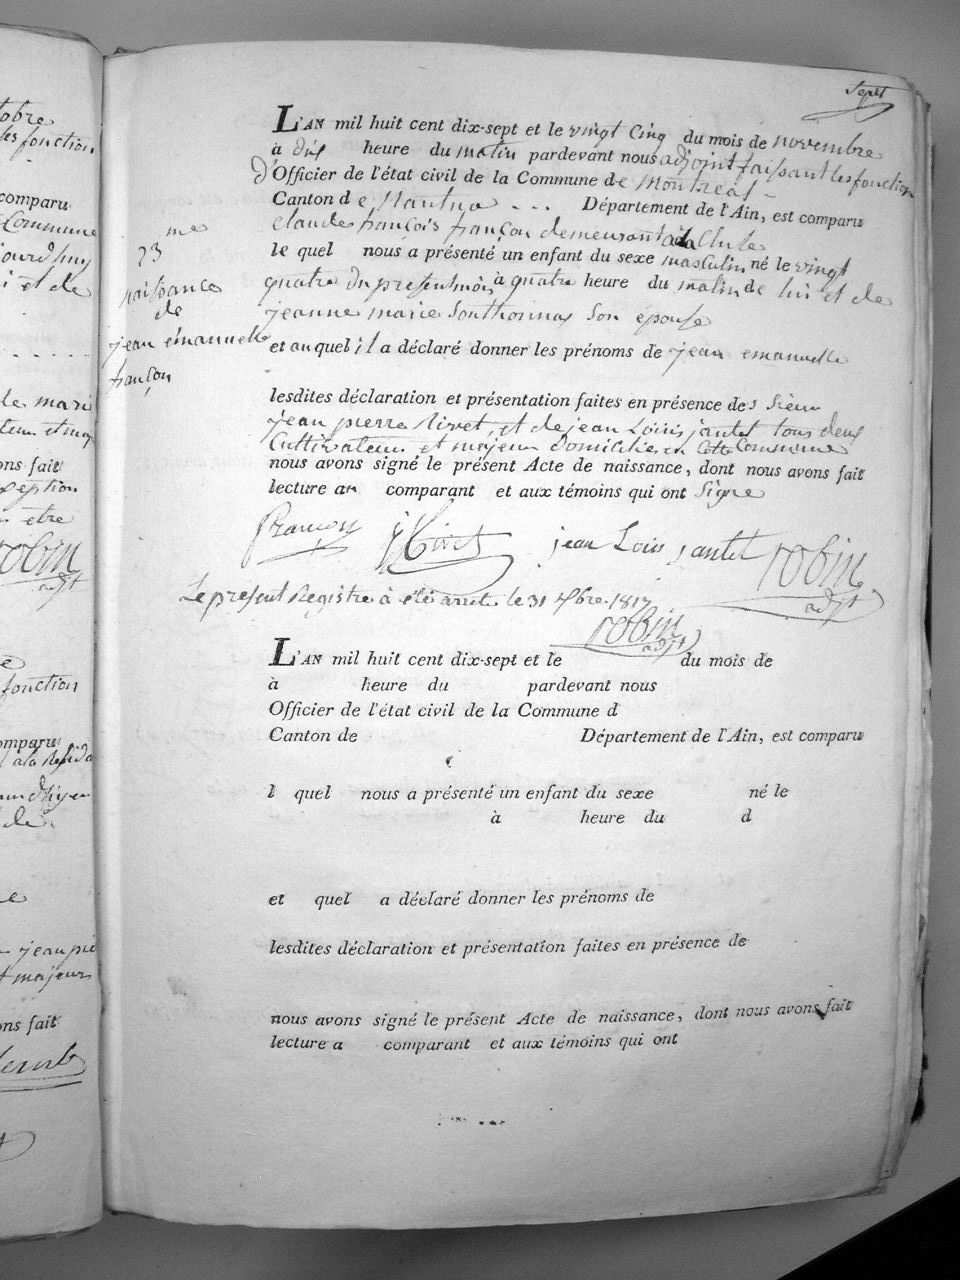 Sept
L'AN mil huit cent dix-sept et le vingt Cinq du mois de novembre
à dix heure du matin pardevant nous adjoint faisant les fonction
D'Officier de l'état civil de la Commune de Montréal
Canton de Nantua - - - Département de l'Ain, est comparu
Claude françois françon demeurant à la Cluse
le quel nous a présenté un enfant du sexe masculin né le vingt
quatre du present mois à quatre heure du matin de lui et de
jeanne marie Southonnax Son épouse
et au quel il a déclaré donner les prénoms de jean emanuelle
23 me
naissance
de
jean émanuelle
françon
lesdites déclaration et présentation faites en présence des Sieur
jean pierre Rivet, et de jean Louis jantet tous deux
Cultivateur et majeur domicilié en Cette Commune
nous avons signé le présent Acte de naissance, dont nous avons fait
lecture au comparant et aux témoins qui ont Signe
françon jp Rivet jean Louis jantet robin
adjt
Le present Registre à été arreté le 31 Xbre 1817
robin
adjt
L'AN mil huit cent dix-sept et le du mois de
à heure du pardevant nous
Officier de l'état civil de la Commune d
Canton de Département de l'Ain, est comparu
l quel nous a présenté un enfant du sexe né le
à heure du d
et quel a déclaré donner les prénoms de
lesdites déclaration et présentation faites en présence de
nous avons signé le présent Acte de naissance, dont nous avons fait
lecture a comparant et aux témoins qui ont